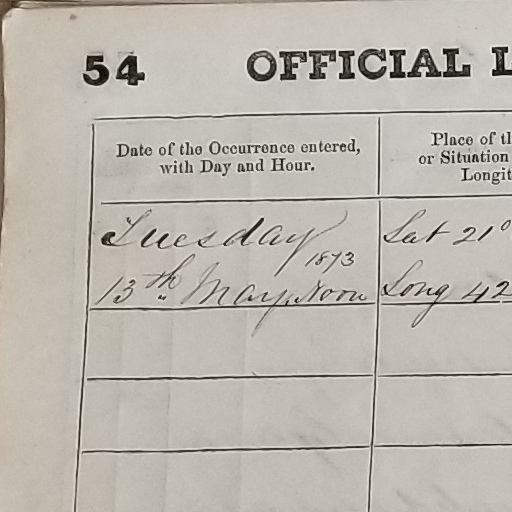 54 OFFICIAL L
Date of the Occurrence entered,
with Day and Hour.
Place of th
or Situation
Longit
Tuesday
1873
13th May. Noon
Lat 21°
Long 42